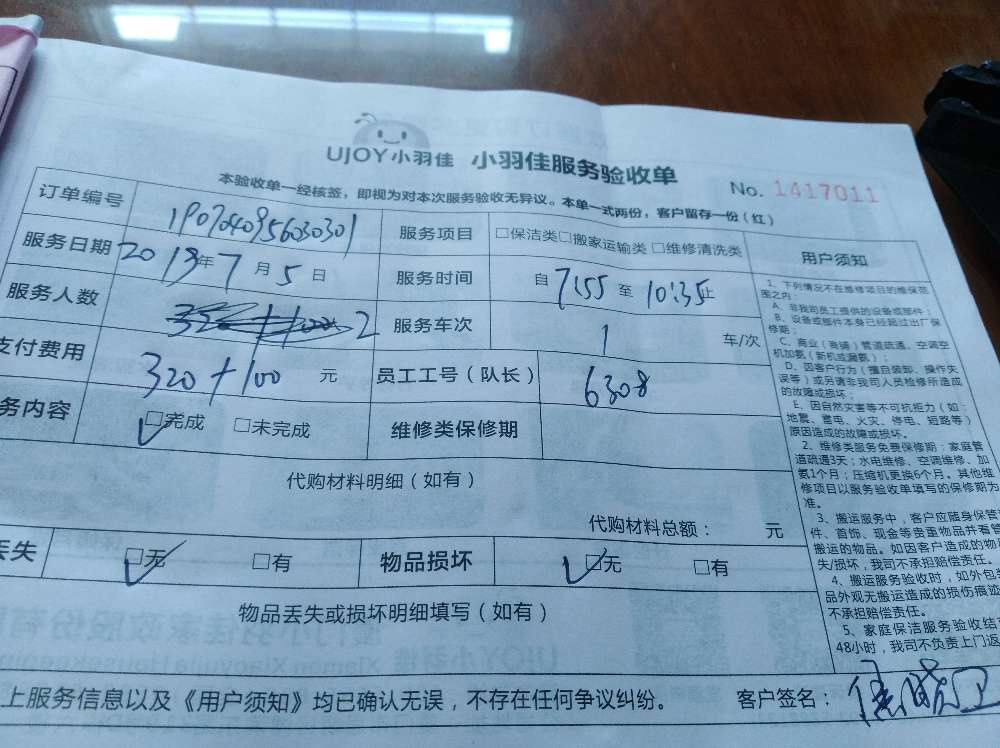 UJOY小羽佳 小羽佳服务验收单
No. 1417011
本验收单一经核签，即视为对本次服务验收无异议。本单一式两份，客户留存一份（红）
订单编号 19070409560301 服务项目 □保洁类□搬家运输类 □维修清洗类
服务日期 2019年7月5日 服务时间 自7:55至10:35止
服务人数 2 服务车次 1 车/次
支付费用 320+100 元 员工工号（队长） 6308
务内容 □完成 □未完成 维修类保修期
代购材料明细（如有）
代购材料总额： 元
丢失 □无 □有 物品损坏 □无 □有
物品丢失或损坏明细填写（如有）
上服务信息以及《用户须知》均已确认无误，不存在任何争议纠纷。 客户签名：
用户须知
1、下列情况不在维修项目的维保范
围之内：
A、非我司员工提供的设备或部件；
B、设备或部件本身已经超过出厂保
修期；
C、商业（商铺）管道疏通、空调空
机加氨（新机或漏氨）；
D、因客户行为（擅自装卸、操作失
误等）或另请非我司人员检修所造成
的故障或损坏；
E、因自然灾害等不可抗拒力（如：
地震、雷电、火灾、停电、短路等）
原因造成的故障或损坏。
2、维修类服务免费保修期：家庭管
道疏通3天；水电维修、空调维修、加
氨1个月；压缩机更换6个月。其他维
修项目以服务验收单填写的保修期为
准。
3、搬运服务中，客户应随身保管
件、首饰、现金等贵重物品并看管
搬运的物品。如因客户造成的物
失/损坏，我司不承担赔偿责任。
4、搬运服务验收时，如外包
品外观无搬运造成的损伤痕迹
不承担赔偿责任。
5、家庭保洁服务验收结
48小时，我司不负责上门返